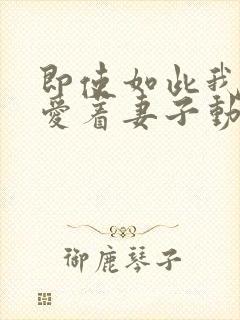 即使如此我
愛着妻子動
御鹿琴子